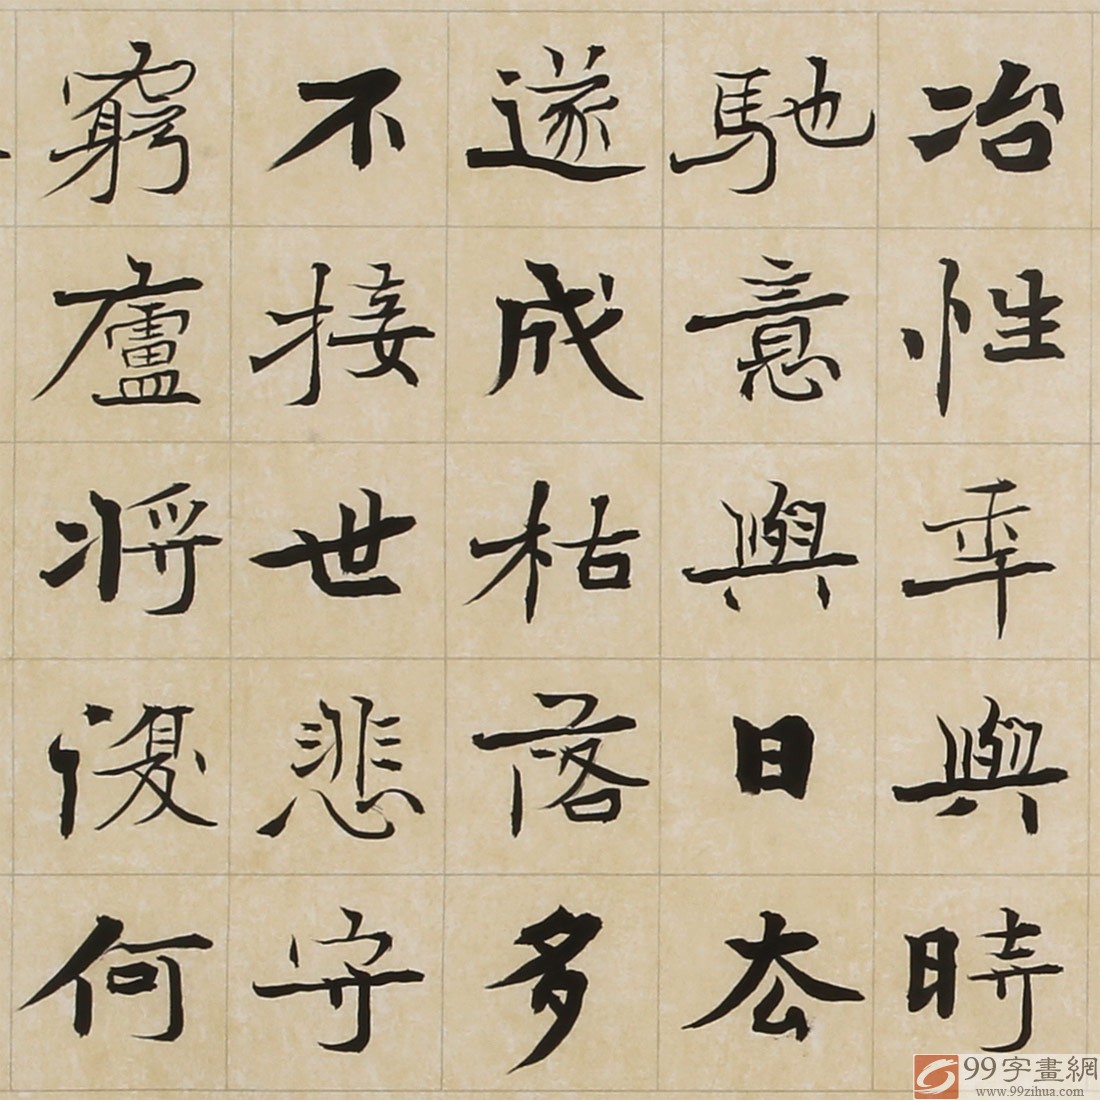 冶性年與時
馳意與日去
遂成枯落多
不接世悲守
窮廬將復何
99字畫網
www.99zihua.com